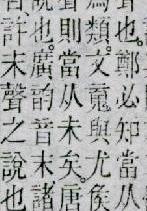 也。鄭必知當从
爲類。文䰟與尤矦
則當从未矣。唐
說也。廣韵音末諸
許末聲之說也